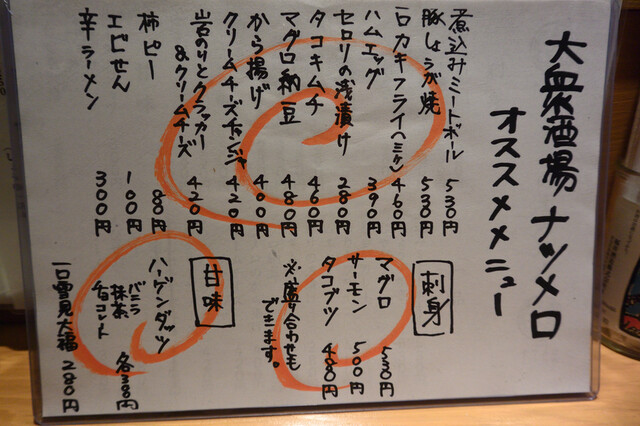 大衆酒場ナツメロ
オススメメニュー
煮込みミートボール 530円
豚しょうが焼 530円
一口カキフライ(三ヶ) 460円
ハムエッグ 390円
セロリの浅漬け 280円
タコキムチ 460円
マグロ納豆 480円
から揚げ 400円
クリームチーズチャンジャ 420円
岩のりとクラッカー
&クリームチーズ 420円
柿ピー 80円
エビせん 100円
辛ラーメン 300円
刺身
マグロ 530円
サーモン 500円
タコブツ 480円
※盛り合わせも
できます。
甘味
ハーゲンダッツ
バニラ
抹茶
チョコレート 各300円
一口雪見大福 280円